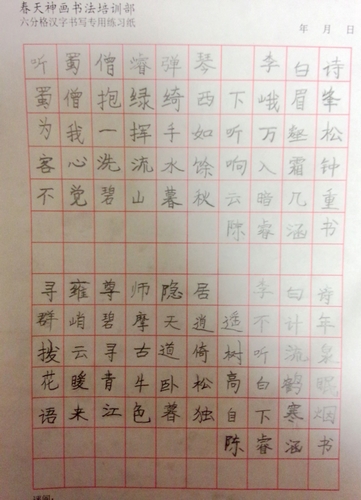 春天神画书法培训部
六分格汉字书写专用练习纸
年 月 日
听蜀僧濬弹琴 李白诗
蜀僧抱绿绮西下峨眉峰
为我一挥手如听万壑松
客心洗流水馀响入霜钟
不觉碧山暮秋云暗几重
陈睿涵书
寻雍尊师隐居 李白诗
群峭碧摩天逍遥不计年
拨云寻古道倚树听流泉
花暖青牛卧松高白鹤眠
语来江色暮独自下寒烟
陈睿涵书